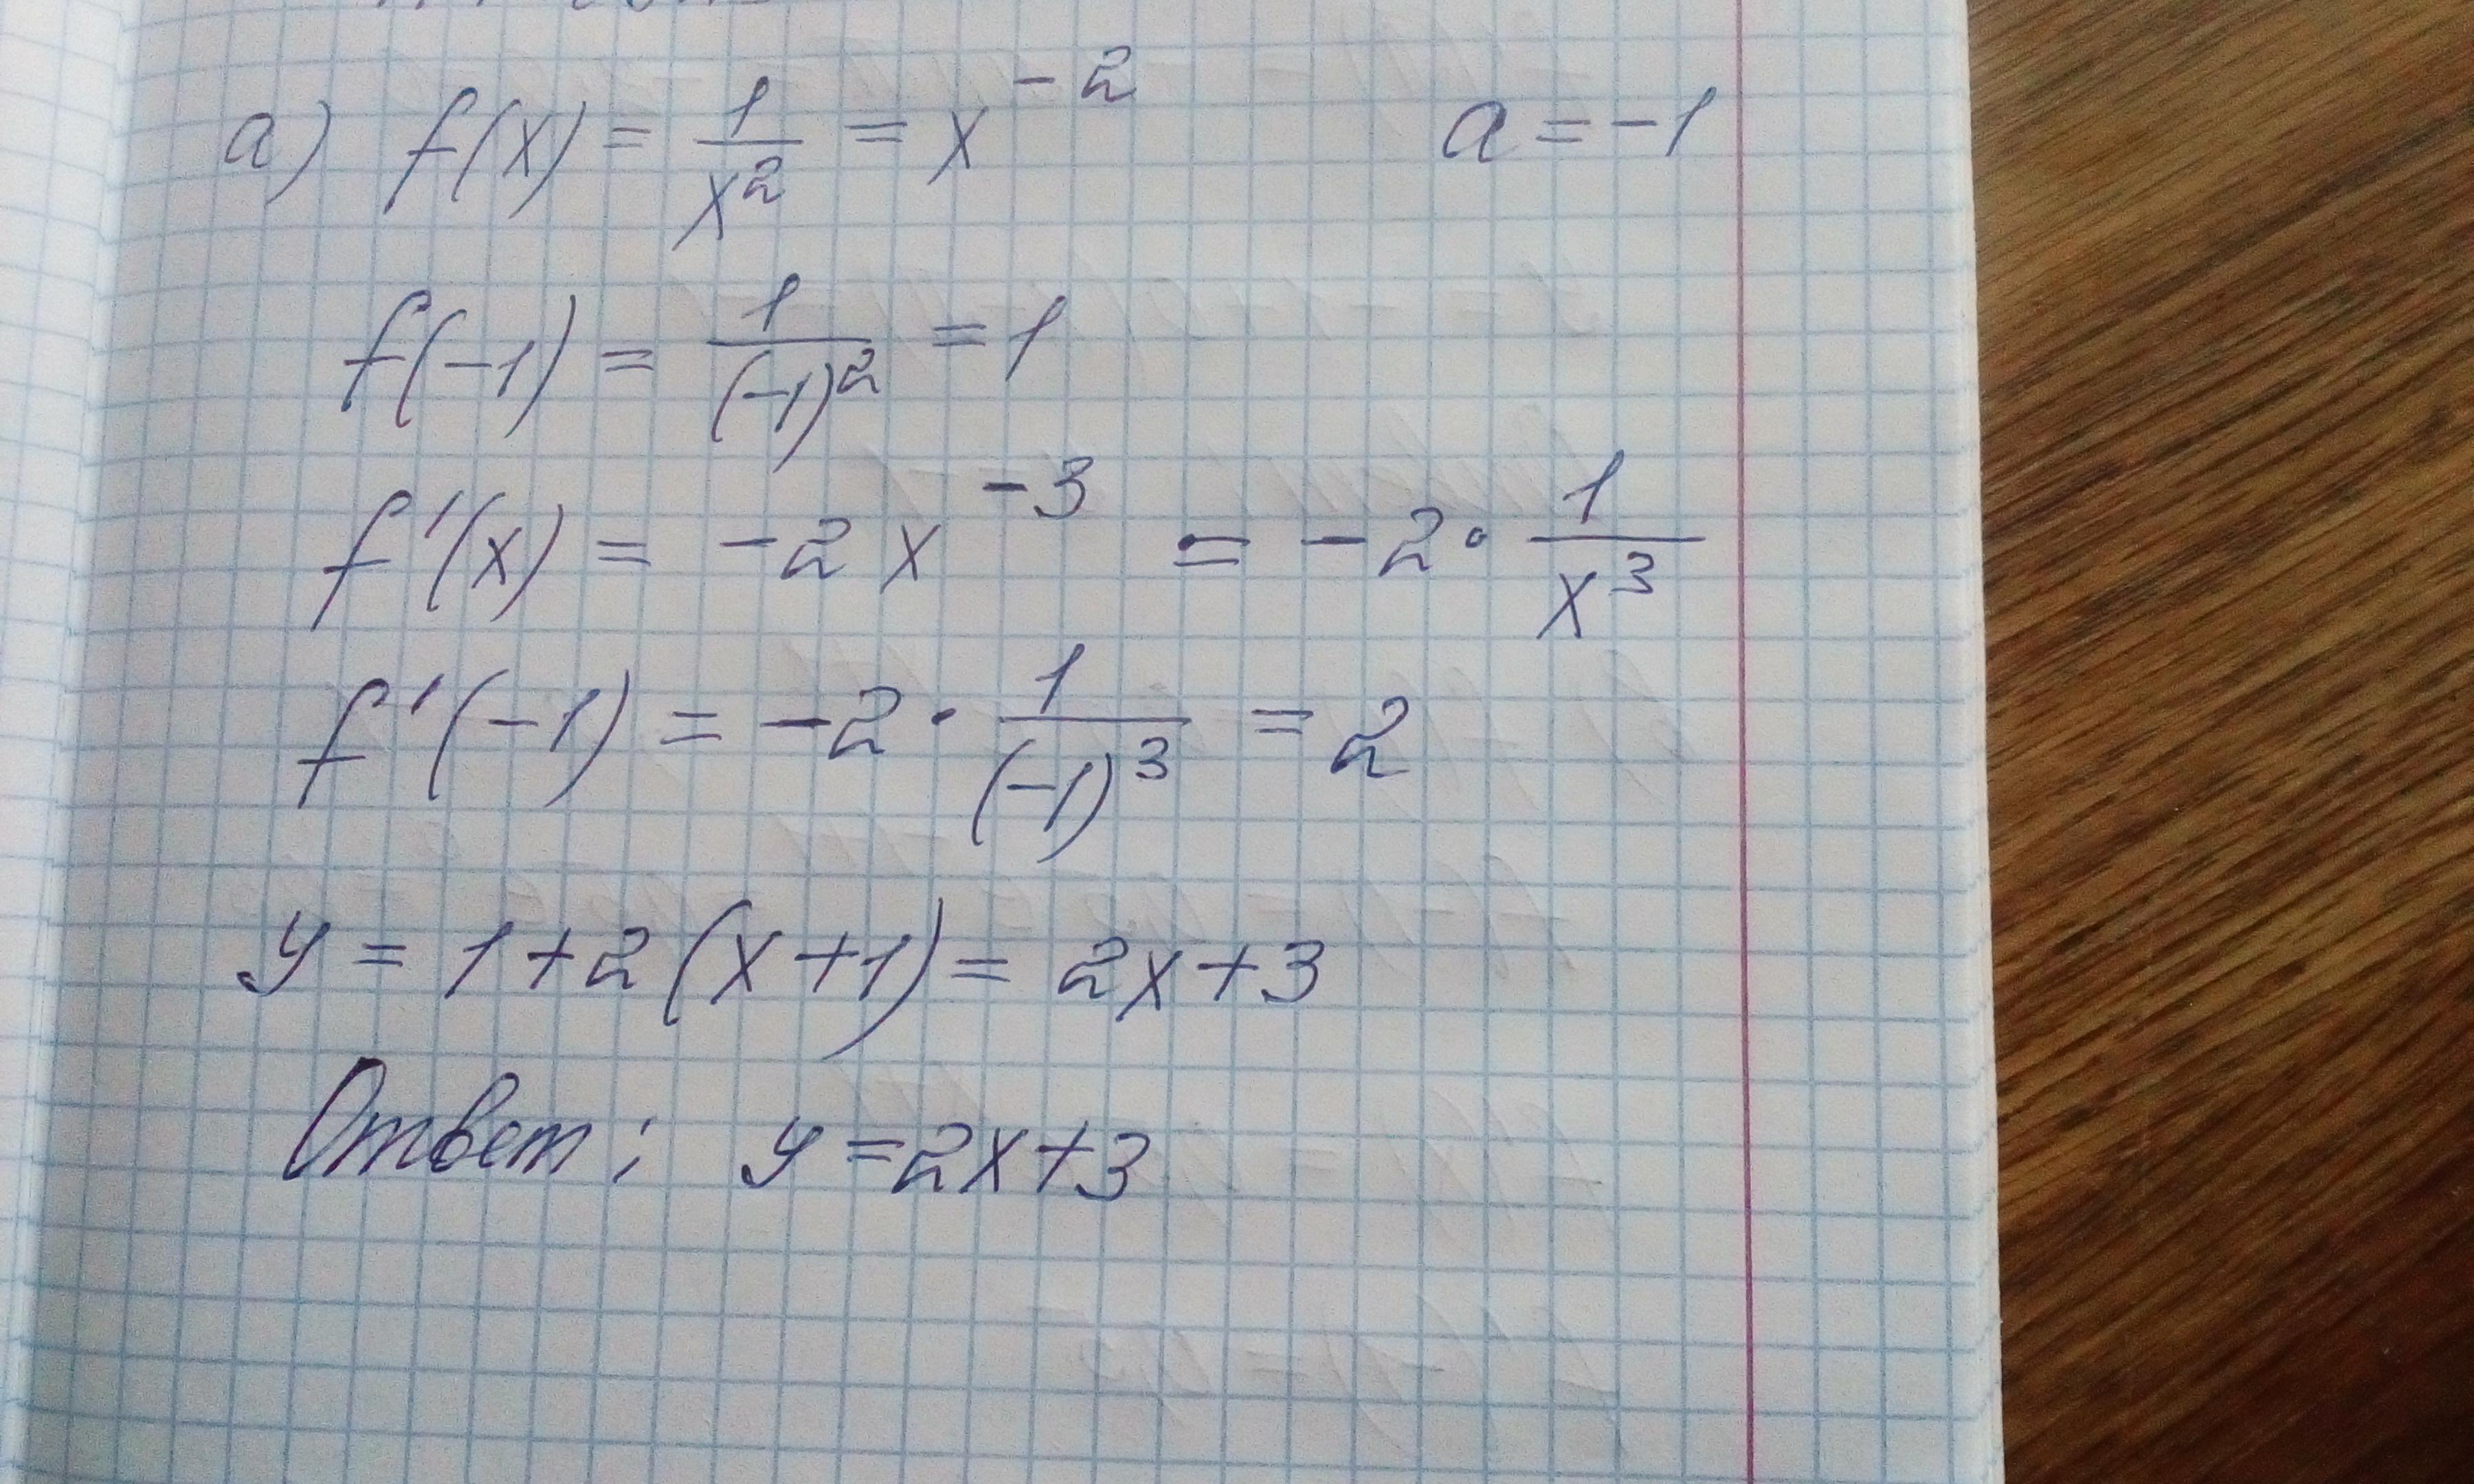 а) f(x) = 1/x² = x⁻² a = -1
f(-1) = 1/(-1)² = 1
f'(x) = -2x⁻³ = -2 · 1/x³
f'(-1) = -2 · 1/(-1)³ = 2
y = 1+2(x+1) = 2x+3
Ответ: y=2x+3